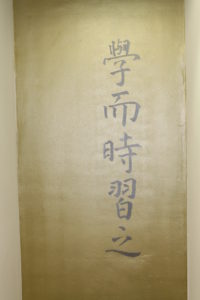 學而時習之